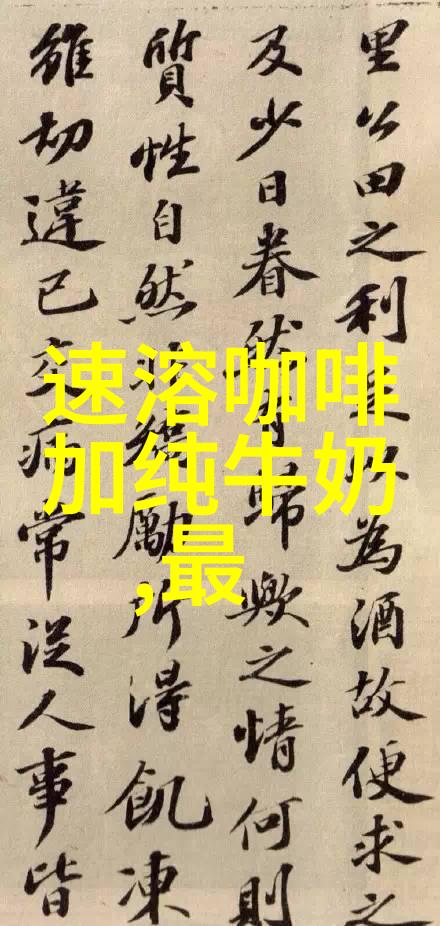 速溶咖啡
加纯牛奶
,最
里公田之利足以為酒故便求之
及少日眷然有歸歟之情何則
質性自然非矯勵所得飢凍
雖切違已交病常從人事皆